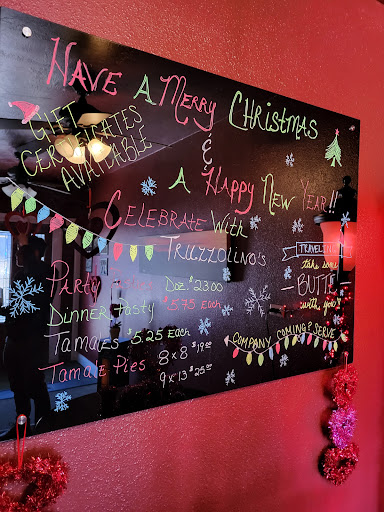 Have A Merry Christmas
&
A Happy New Year!!
Gift
Certificates
Available
Celebrate With
Truzzolino's
Party Doz $23.00
Dinner Tasty $5.75 Each
Tamales $5.25 Each
Tamale Pies 8x8 $19.00
9x13 $25.00
Traveling
take some
Butte
with you
Company Coming? Serve